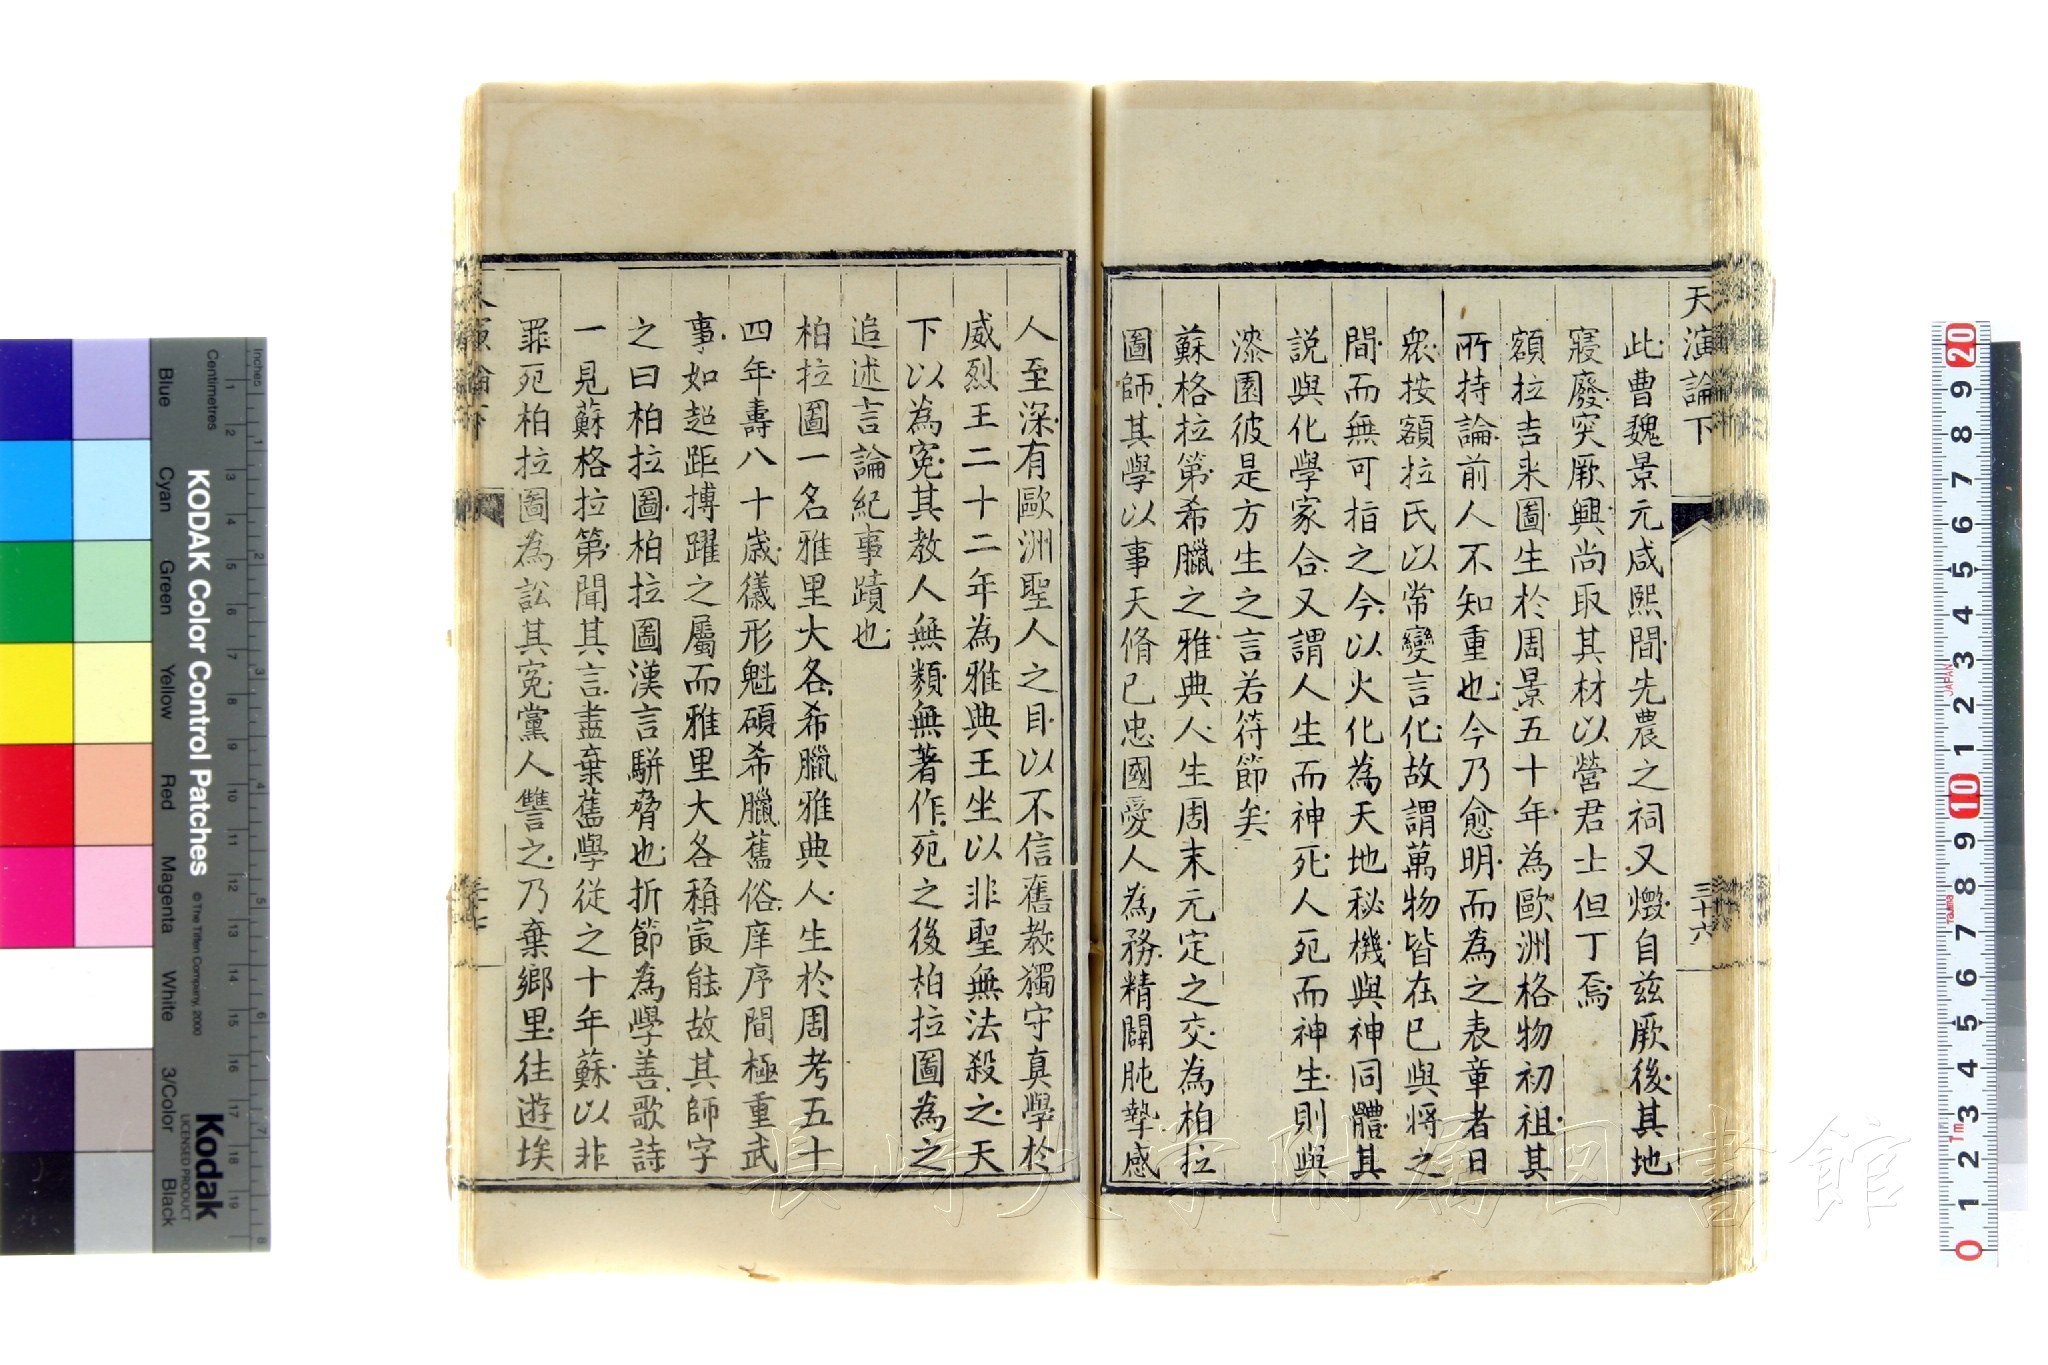 天演論下
三十六
此曹魏景元咸熙間先農之祠又燬自兹厥後其地
寢廢突厥興尚取其材以營君士但丁焉
額拉吉來圖生於周景五十年為歐洲格物初祖其
所持論前人不知重也今乃愈明而為之表章者日
衆按額拉氏以常變言化故謂萬物皆在已與將之
間而無可指之今以火化為天地秘機與神同體其
説與化學家合又謂人生而神死人死而神生則與
漆園彼是方生之言若符節矣
蘇格拉第希臘之雅典人生周末元定之交為柏拉
圖師其學以事天脩己忠國愛人為務精闢肫摯感
人至深有歐洲聖人之目以不信舊教獨守真學於
威烈王二十二年為雅典王坐以非聖無法殺之天
下以為冤其教人無類無著作死之後柏拉圖為之
追述言論紀事蹟也
柏拉圖一名雅里大各希臘雅典人生於周考五十
四年壽八十歲儀形魁碩希臘舊俗庠序間極重武
事如超距搏躍之屬而雅里大各稱最能故其師字
之曰柏拉圖柏拉圖漢言駢脅也折節為學善歌詩
一見蘇格拉第聞其言盡棄舊學從之十年蘇以非
罪死柏拉圖為訟其冤黨人讐之乃棄鄉里往遊埃
KODAK Color Control Patches
© The Tiffen Company, 2000
Kodak
LICENSED PRODUCT
Inches
Centimetres
Blue
Cyan
Green
Yellow
Red
Magenta
White
3/Color
Black
JAPAN
Tajima
長崎大学附属図書館